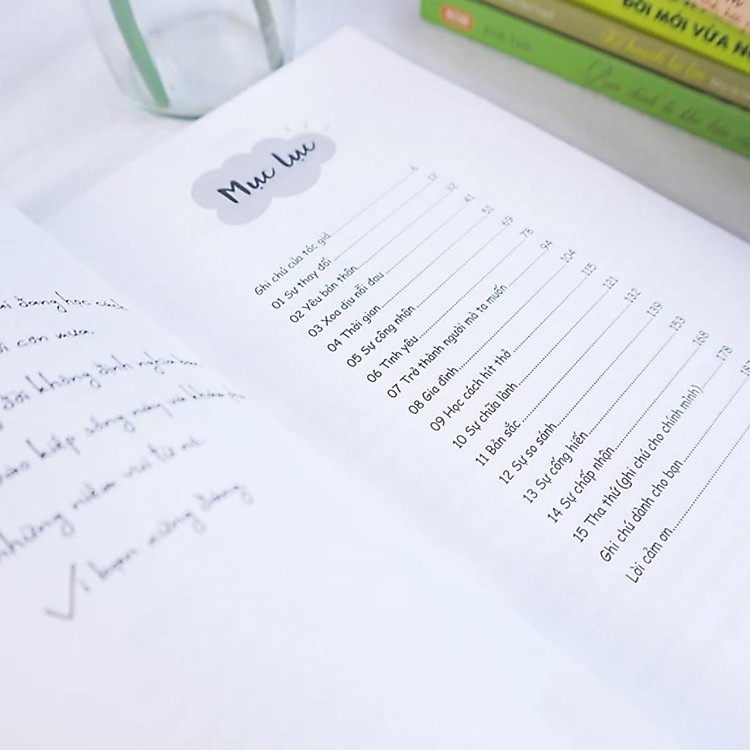 ĐỜI MỚI VỪA
Mục lục
Ghi chú của tác giả 6
01 Sự thay đổi 12
02 Yêu bản thân 32
03 Xoa dịu nỗi đau 41
04 Thời gian 51
05 Sự công nhận 69
06 Tình yêu 78
07 Trở thành người mà ta muốn 94
08 Gia đình 104
09 Học cách hít thở 115
10 Sự chữa lành 121
11 Bản sắc 132
12 Sự so sánh 139
13 Sự cống hiến 153
14 Sự chấp nhận 168
15 Tha thứ (ghi chú cho chính mình) 178
Ghi chú dành cho bạn
Lời cảm ơn
đang học
cơn mưa.
đời không định nghĩa
kiếp sống này và
những niềm vui từ nó
Vì bạn xứng đáng